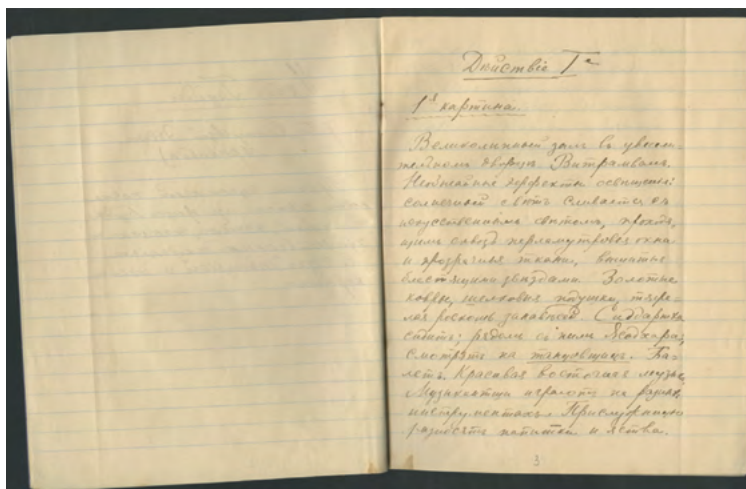 Дѣйствіе Iе
1я картина.
Великолѣпный залъ въ увесели-
тельномъ дворцѣ Витрамвамъ.
Необычайные эффекты освѣщенія:
солнечный свѣтъ сливается съ
искусственнымъ свѣтомъ, проходя-
щимъ сквозь перламутровыя окна
и прозрачныя ткани, вышитыя
блестящими звѣздами. Золотые
ковры, шелковыя подушки, тяже-
лая роскошь занавѣсей. Сиддартха
сидитъ; рядомъ съ нимъ
смотрятъ на танцовщицъ. Ба-
летъ. Красивая восточная музыка
Музыканты играютъ на разныхъ
инструментахъ. Прислужницы
разносятъ напитки и яства.
3